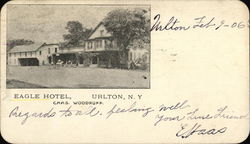 Urlton Feb 9-06
EAGLE HOTEL, URLTON, N.Y
CHAS. WOODRUFF.
Regards to all. feeling well
your true Friend
E Haas